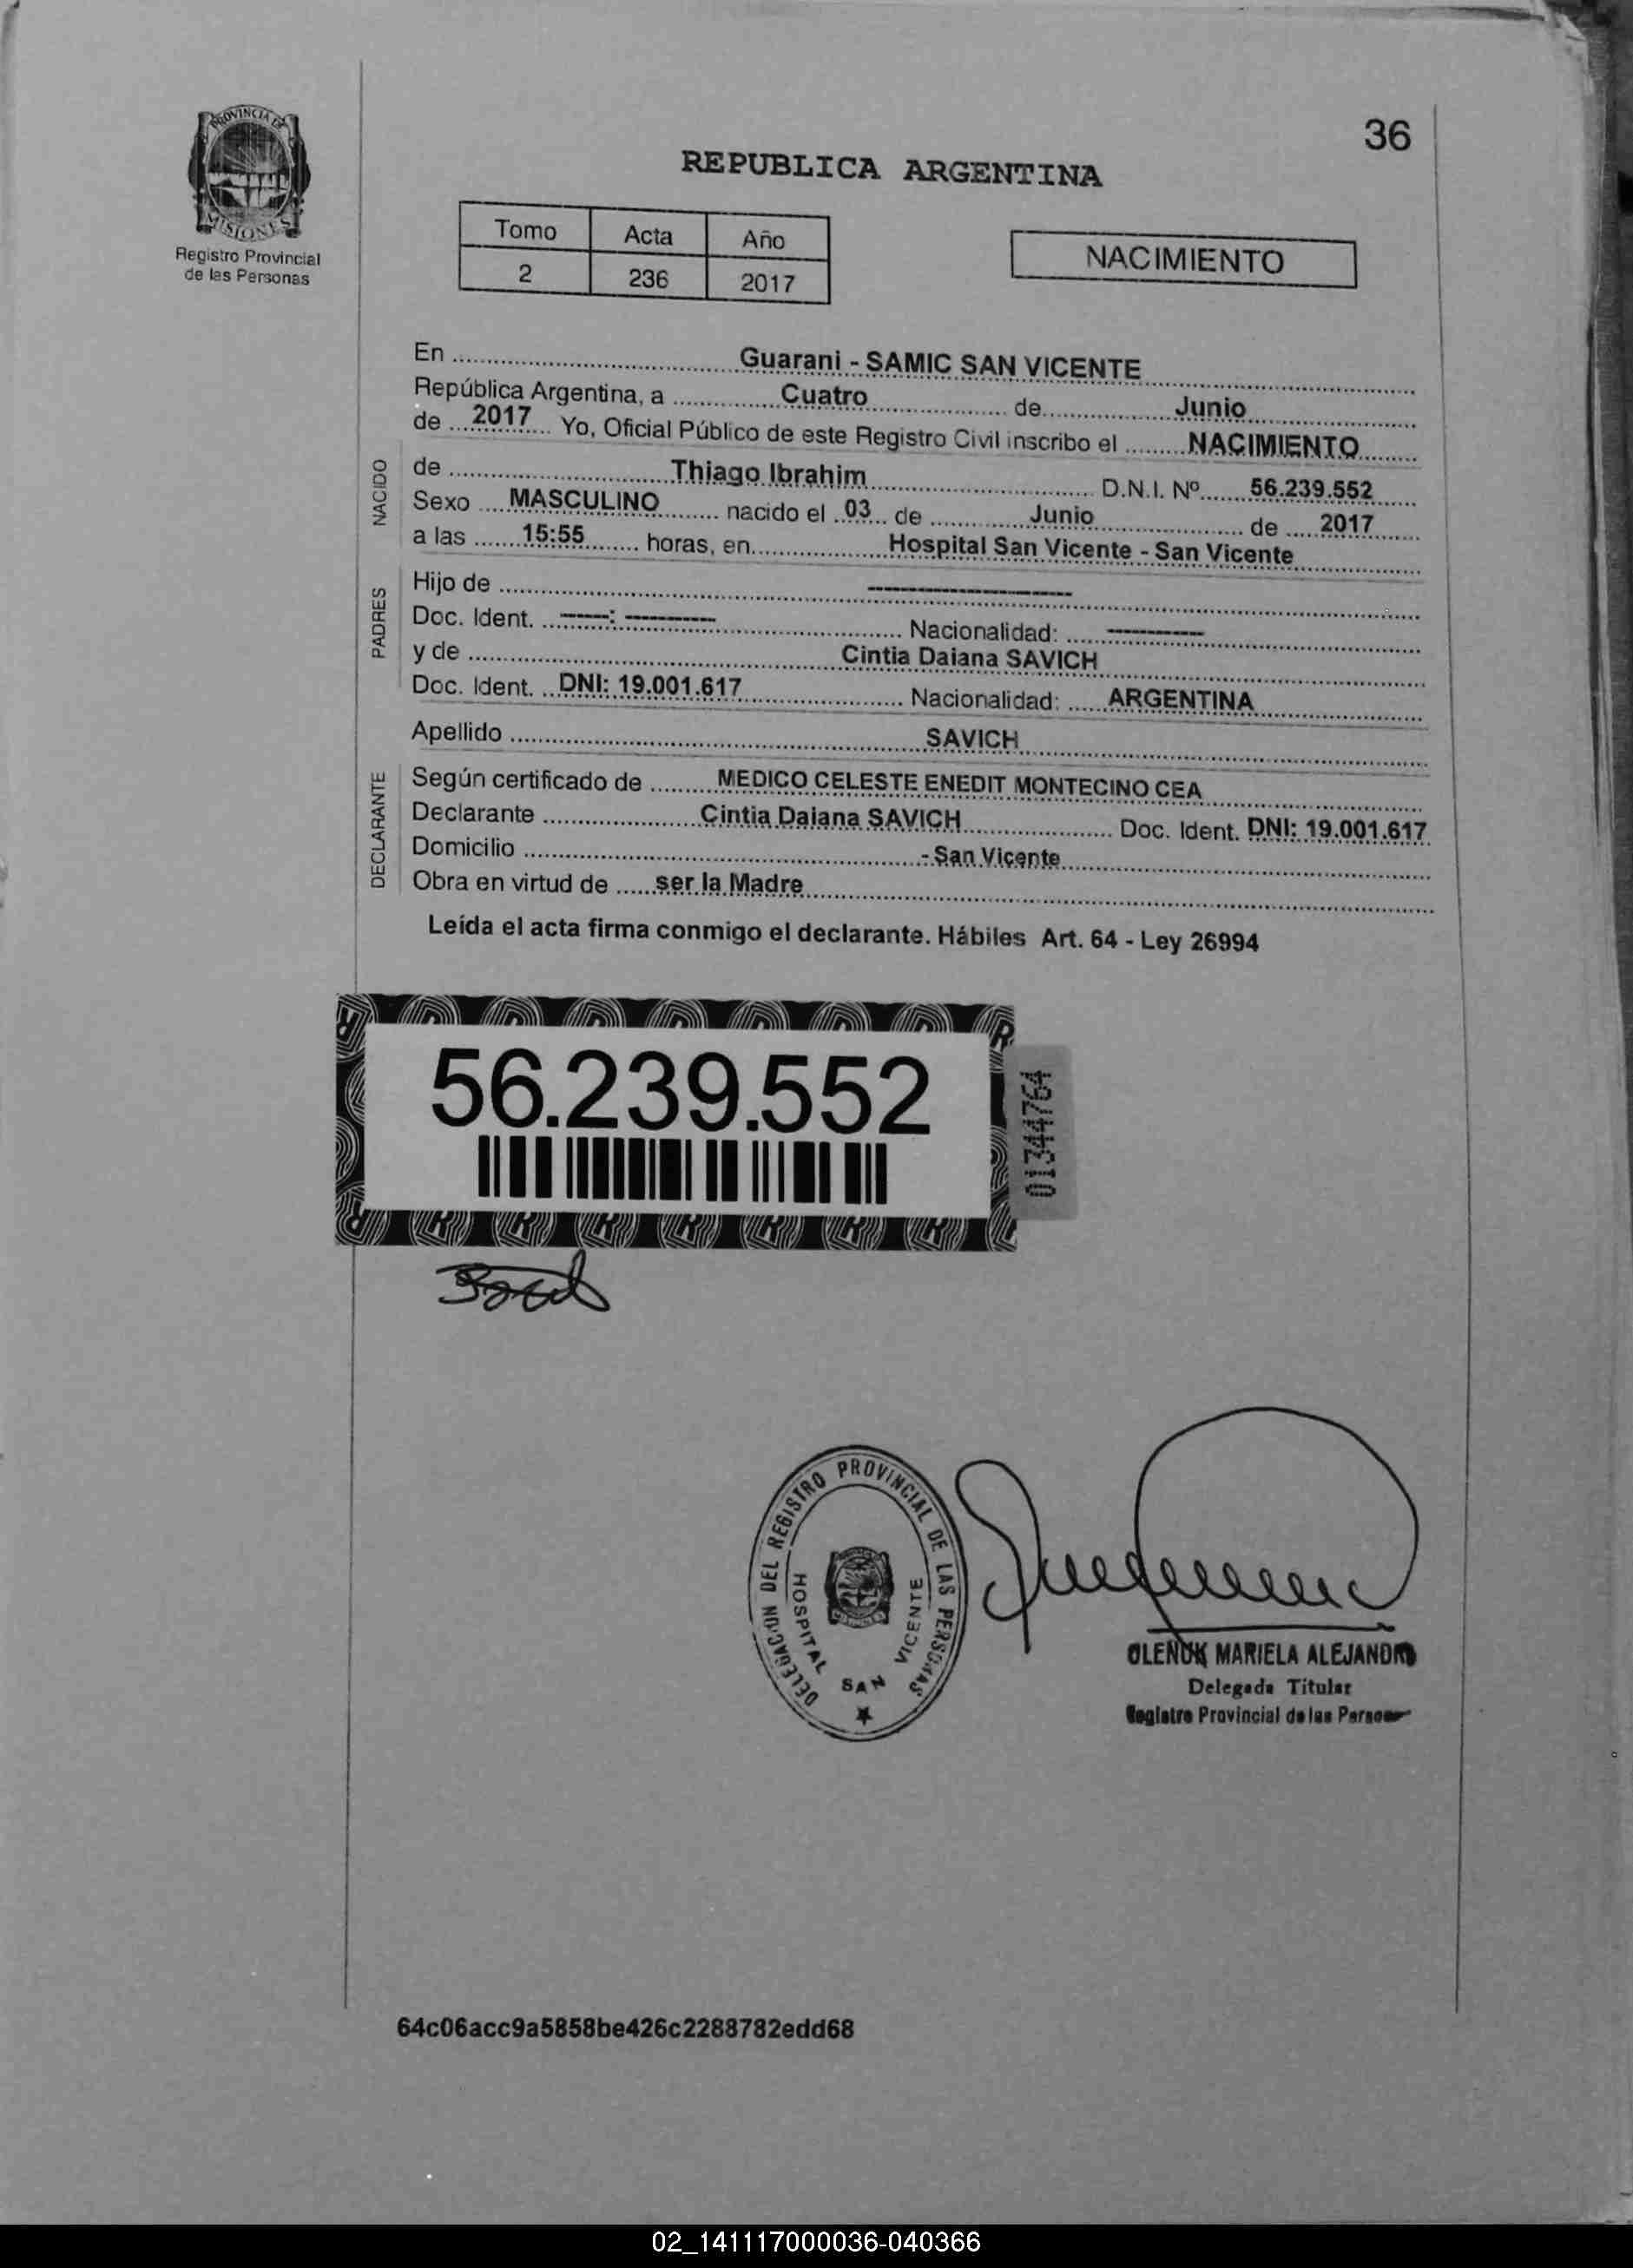 PROVINCIA DE
MISIONES
Registro Provincial
de las Personas
36
REPUBLICA ARGENTINA
Tomo Acta Año
2 236 2017
NACIMIENTO
En Guarani - SAMIC SAN VICENTE
República Argentina, a Cuatro de Junio
de 2017 Yo, Oficial Público de este Registro Civil inscribo el NACIMIENTO
NACIDO
de Thiago Ibrahim D.N.I. Nº 56.239.552
Sexo MASCULINO nacido el 03 de Junio de 2017
a las 15:55 horas, en Hospital San Vicente - San Vicente
PADRES
Hijo de --------------------
Doc. Ident. -----: --------- Nacionalidad: ----------
y de Cintia Daiana SAVICH
Doc. Ident. DNI: 19.001.617 Nacionalidad: ARGENTINA
Apellido SAVICH
DECLARANTE
Según certificado de MEDICO CELESTE ENEDIT MONTECINO CEA
Declarante Cintia Daiana SAVICH Doc. Ident. DNI: 19.001.617
Domicilio - San Vicente
Obra en virtud de ser la Madre
Leída el acta firma conmigo el declarante. Hábiles Art. 64 - Ley 26994
56.239.552
01344764
DELEGACION DEL REGISTRO PROVINCIAL DE LAS PERSONAS
HOSPITAL SAN VICENTE
OLENUK MARIELA ALEJANDRA
Delegada Titular
Registro Provincial de las Personas
64c06acc9a5858be426c2288782edd68
02_141117000036-040366